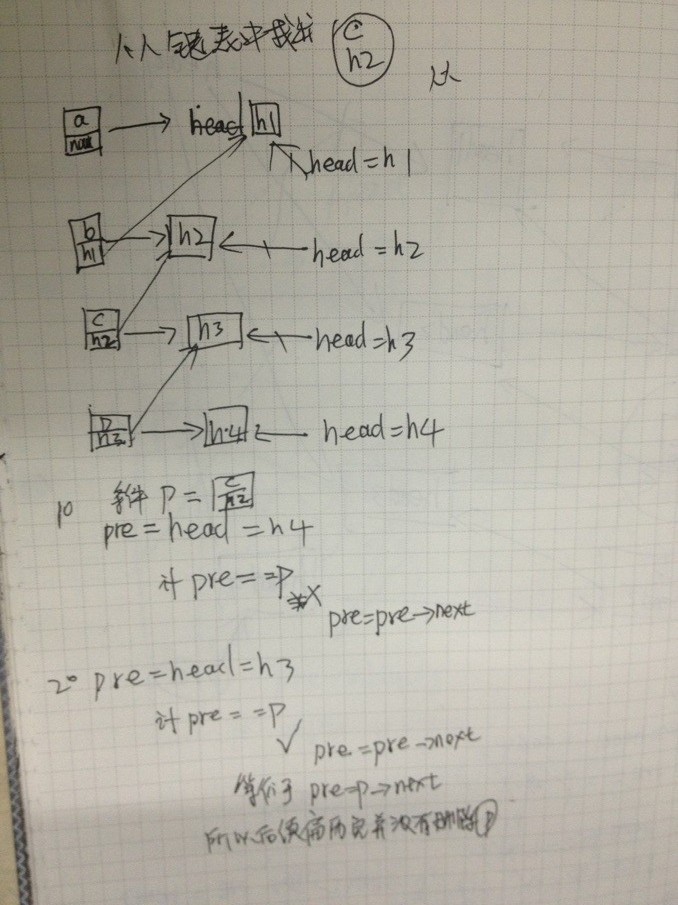 从人链表中找出 c h2
从
a null head h1
head=h1
b h1 h2 head=h2
c h2 h3 head=h3
D h3 h4 head=h4
1° 条件 P= c h2
pre=head=h4
计 pre==P X
pre=pre→next
2° pre=head=h3
计 pre==P ✓
pre=pre→next
等价于 pre=p→next
所以后续遍历完并没有删除P